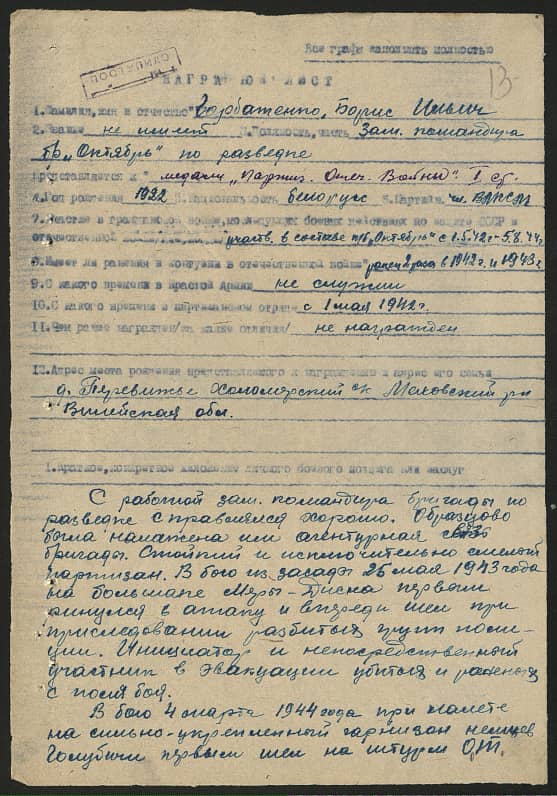 Все графы заполнять полностью
13
НАГРАДНОЙ ЛИСТ
1.Фамилия, имя и отчество Горбатенко, Борис Ильич
2.Звание не имеет 3.Должность, часть Зам. командира
п/б „Октябрь" по разведке
Представляется к медали „Партиз. Отеч. Войны" I ст.
4.Год рождения 1922 5.Национальность белорус 6.Партийн. чл. ВЛКСМ
7.Участие в гражданской войне, последующих боевых действиях по защите СССР и
отечественной участв. в составе п/б „Октябрь" с 1.5.42г-5.8.44г
8.Имеет ли ранения и контузии в отечественной войне ранен 2 раза в 1942г. и 1943г.
9.С какого времени в Красной Армии не служил
10.С какого времени в партизанском отряде с 1 мая 1942г.
11.Чем ранее награжден/за какие отличия/ не награжден
12.Адрес места рождения представляемого к награждению и адрес его семьи
д. Холомерский с/с
Вилейская обл.
1.Краткое, конкретное изложение личного боевого подвига или заслуг
С работой зам. командира бригады по
разведке справлялся хорошо. Образцово
была налажена им агентурная
бригады. Стойкий и исключительно смелый
партизан. В бою из засады 25 мая 1943 года
на большаке первым
кинулся в атаку и впереди шел при
приследовании разбитых групп поли-
ции. Инициатор и непосредственный
участник в эвакуации убитых и раненых
с поля боя.
В бою 4 марта 1944 года при налете
на сильно-укрепленный гарнизон немцев
первым шел на штурм